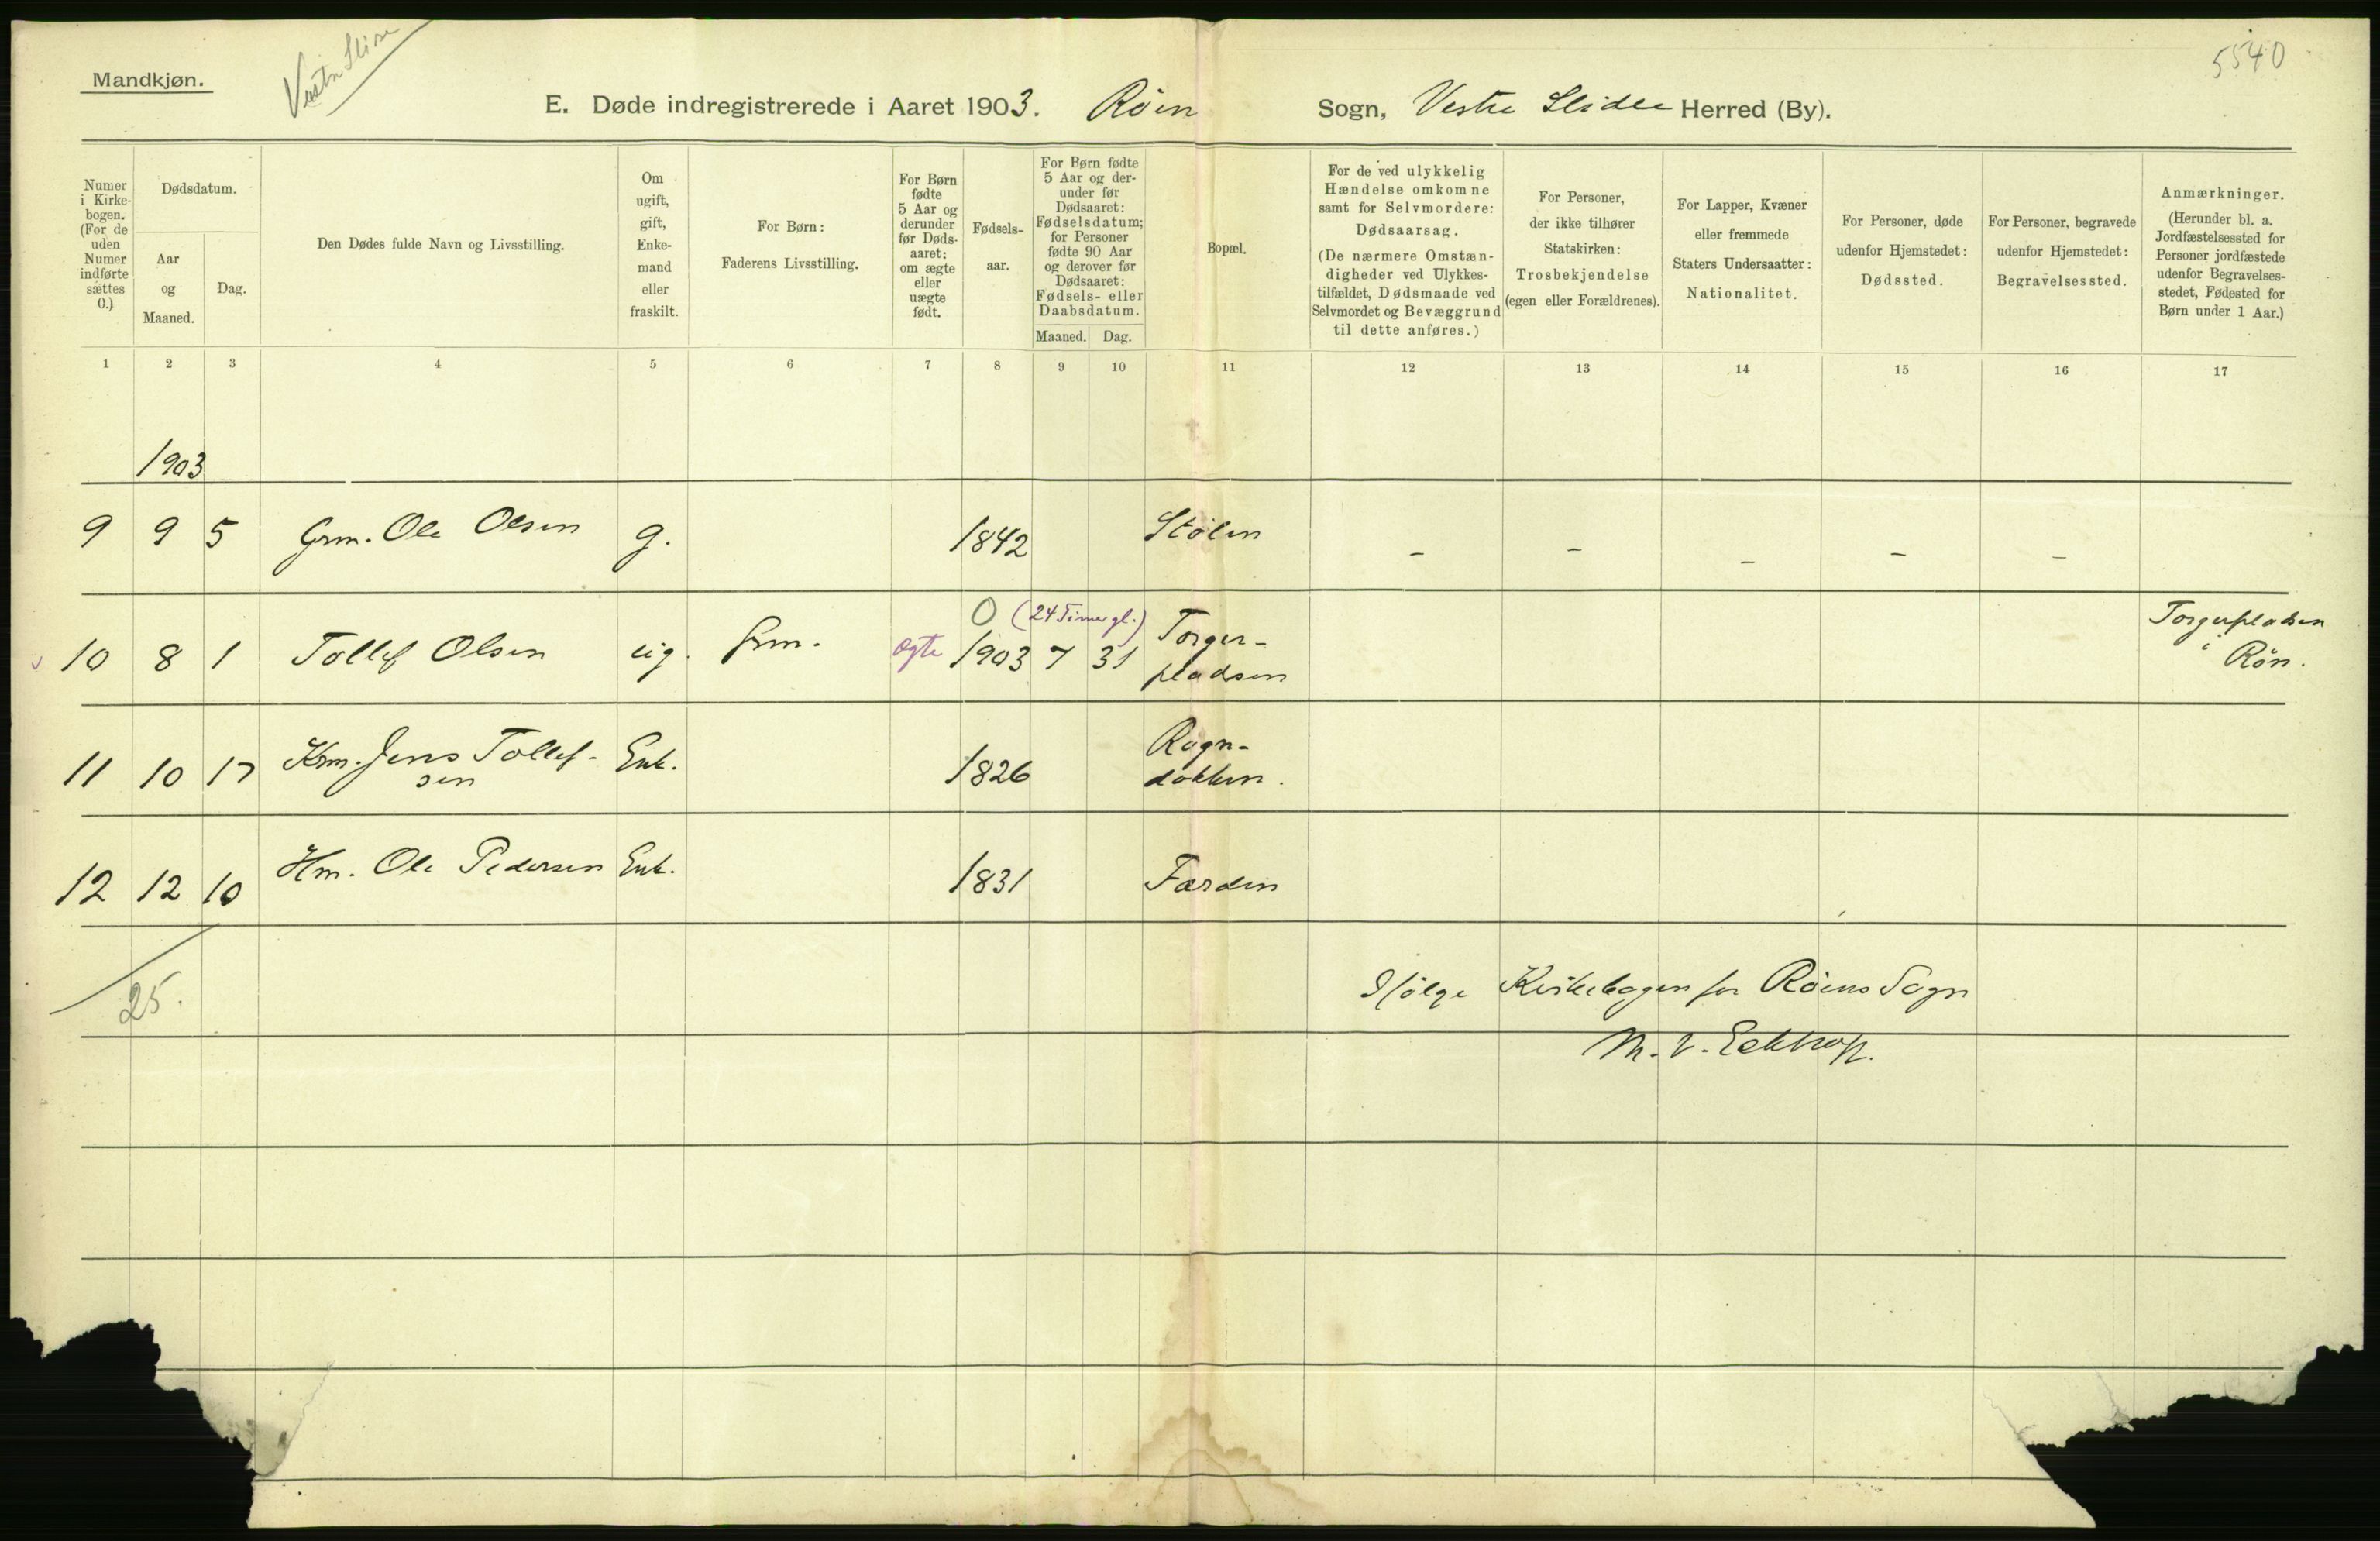 Mandkjøn.
Vestre Slire
5540
E. Døde indregistrerede i Aaret 1903. Røin Sogn, Vestre Slidre Herred (By).
Numer i Kirke-bogen. (For de uden Numer indførte sættes 0.)
Dødsdatum.
Aar og Maaned.
Dag.
Den Dødes fulde Navn og Livsstilling.
Om ugift, gift, Enke-mand eller fraskilt.
For Børn: Faderens Livsstilling.
For Børn fødte 5 Aar og derunder før Døds-aaret: om ægte eller uægte født.
Fødsels-aar.
For Børn fødte 5 Aar og der-under før Dødsaaret: Fødselsdatum; for Personer fødte 90 Aar og derover før Dødsaaret: Fødsels- eller Daabsdatum.
Maaned. Dag.
Bopæl.
For de ved ulykkelig Hændelse omkomne samt for Selvmordere: Dødsaarsag. (De nærmere Omstæn-digheder ved Ulykkes-tilfældet, Dødsmaade ved Selvmordet og Bevæggrund til dette anføres.)
For Personer, der ikke tilhører Statskirken: Trosbekjendelse (egen eller Forældrenes).
For Lapper, Kvæner eller fremmede Staters Undersaatter: Nationalitet.
For Personer, døde udenfor Hjemstedet: Dødssted.
For Personer, begravede udenfor Hjemstedet: Begravelsessted.
Anmærkninger. (Herunder bl. a. Jordfæstelsessted for Personer jordfæstede udenfor Begravelses-stedet, Fødested for Børn under 1 Aar.)
1 2 3 4 5 6 7 8 9 10 11 12 13 14 15 16 17
1903
9 9 5 Grm. Ole Olsen g. 1842 Stølen - - - - -
0 (24 Timer gl.)
10 8 1 Tollef Olsen ug. Grm. ægte 1903 7 31 Torger-pladsen Torgerpladsen i Røn.
11 10 17 Krm. Jens Tollef-sen Enk. 1826 Rogn-dokken.
12 12 10 Hm. Ole Pedersen Enk. 1831 Færden
25.
Ifølge Kirkebogen for Røins Sogn
M. V. Eckhoff.